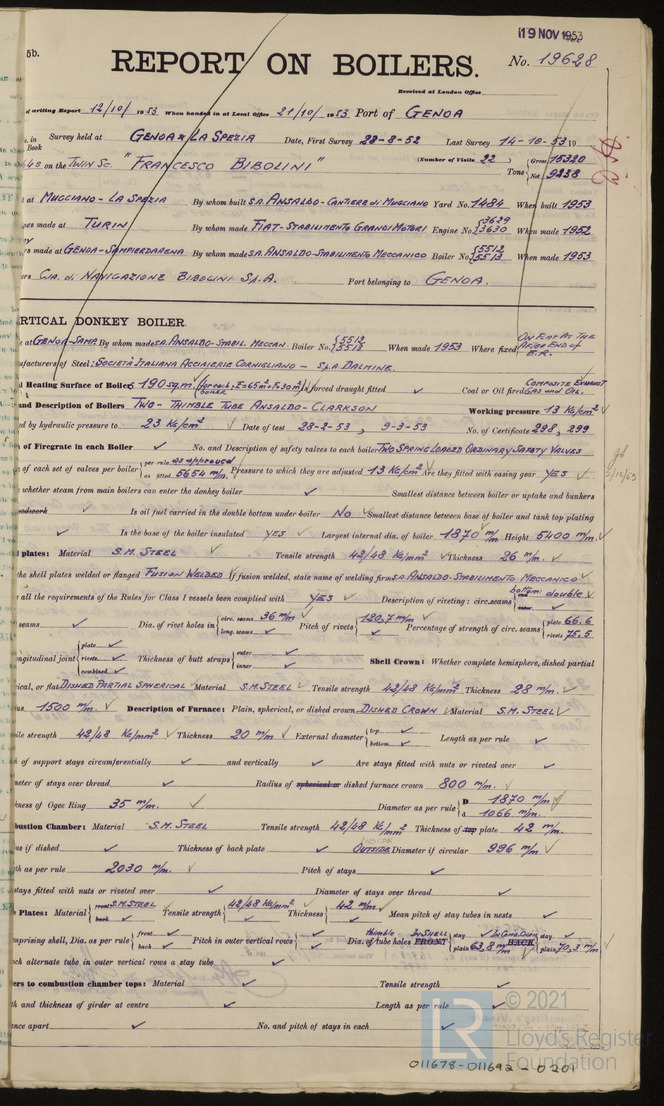 19 NOV 1953
5b.
REPORT ON BOILERS.
No. 19628
Received at London Office
of writing Report 12/10/ 1953 When handed in at Local Office 21/10/ 1953 Port of GENOA
in Book Survey held at GENOA & LA SPEZIA Date, First Survey 28-8-52 Last Survey 14-10-53 19
on the TWIN SC. "FRANCESCO BIBOLINI" (Number of Visits 22) Tons { Gross 15320 Net 9238
at MUGGIANO-LA SPEZIA By whom built S.A. ANSALDO-CANTIERE di MUGGIANO Yard No. 1484 When built 1953
made at TURIN By whom made FIAT-STABILIMENTO GRANDI MOTORI Engine No. {3629 3630 When made 1952
made at GENOA-SAMPIERDARENA By whom made S.A. ANSALDO-STABILIMENTO MECCANICO Boiler No. {5512 5513 When made 1953
Cia. di NAVIGAZIONE BIBOLINI S.p.A. Port belonging to GENOA.
RTICAL DONKEY BOILER.
at GENOA-SAMP. By whom made S.A. ANSALDO-STABIL. MECCAN. Boiler No. {5512 5513 When made 1953 Where fixed ON FLAT AT THE AFTER END of E.R.
ufacturers of Steel: SOCIETÀ ITALIANA ACCIAIERIE CORNIGLIANO - S.p.A DALMINE.
l Heating Surface of Boilers 190 sq.m. forced draught fitted ✓ Coal or Oil fired COMPOSITE EXHAUST GAS and OIL.
and Description of Boilers TWO - THIMBLE TUBE ANSALDO - CLARKSON Working pressure 13 Kg/cm²
ed by hydraulic pressure to 23 Kg/cm² Date of test 28-2-53, 9-3-53 No. of Certificate 298, 299
of Firegrate in each Boiler ✓ No. and Description of safety valves to each boiler TWO SPRING LOADED ORDINARY SAFETY VALVES
of each set of valves per boiler { per rule as approved as fitted 5654 m/m. Pressure to which they are adjusted 13 Kg/cm² Are they fitted with easing gear YES
whether steam from main boilers can enter the donkey boiler ✓ Smallest distance between boiler or uptake and bunkers
oodwork ✓ Is oil fuel carried in the double bottom under boiler NO Smallest distance between base of boiler and tank top plating
✓ Is the base of the boiler insulated YES Largest internal dia. of boiler 1870 m/m Height 5400 m/m.
l plates: Material S.M. STEEL Tensile strength 42/48 Kg/mm² Thickness 26 m/m.
the shell plates welded or flanged FUSION WELDED If fusion welded, state name of welding firm S.A. ANSALDO-STABILIMENTO MECCANICO
all the requirements of the Rules for Class I vessels been complied with YES Description of riveting: circ. seams { bottom: double
seams ✓ Dia. of rivet holes in { circ. seams 36 m/m long. seams ✓ Pitch of rivets { 120,7 m/m ✓ Percentage of strength of circ. seams { plate 66.6 rivets 75.5
ngitudinal joint { plate ✓ rivets ✓ combined ✓ Thickness of butt straps { outer ✓ inner ✓ Shell Crown: Whether complete hemisphere, dished partial
ical, or flat DISHED PARTIAL SPHERICAL Material S.M. STEEL Tensile strength 42/48 Kg/mm² Thickness 28 m/m.
us 1500 m/m. Description of Furnace: Plain, spherical, or dished crown DISHED CROWN Material S.M. STEEL
ile strength 42/48 Kg/mm² Thickness 20 m/m External diameter { top ✓ bottom ✓ Length as per rule ✓
of support stays circumferentially ✓ and vertically ✓ Are stays fitted with nuts or riveted over ✓
meter of stays over thread ✓ Radius of spherical or dished furnace crown 800 m/m.
kness of Ogee Ring 35 m/m. Diameter as per rule { D 1870 m/m d 1066 m/m.
bustion Chamber: Material S.M. STEEL Tensile strength 42/48 Kg/mm² Thickness of top plate 42 m/m.
us if dished ✓ Thickness of back plate ✓ Diameter if circular 996 m/m
th as per rule 2030 m/m. Pitch of stays ✓
stays fitted with nuts or riveted over ✓ Diameter of stays over thread ✓
Plates: Material { front S.M. STEEL back ✓ Tensile strength { 42/48 Kg/mm² ✓ Thickness { 42 m/m. ✓ Mean pitch of stay tubes in nests ✓
mprising shell, Dia. as per rule { front ✓ back ✓ Pitch in outer vertical rows { ✓ Dia. of thimble tube holes FRONT IN SHELL { stay ✓ plain 63,8 m/m BACK { stay ✓ plain 70,3 m/m
ch alternate tube in outer vertical rows a stay tube ✓
ers to combustion chamber tops: Material ✓ Tensile strength ✓
th and thickness of girder at centre ✓ Length as per rule ✓
ance apart ✓ No. and pitch of stays in each ✓
© 2021
LR
Lloyd's Register
Foundation
011678-011692-0201